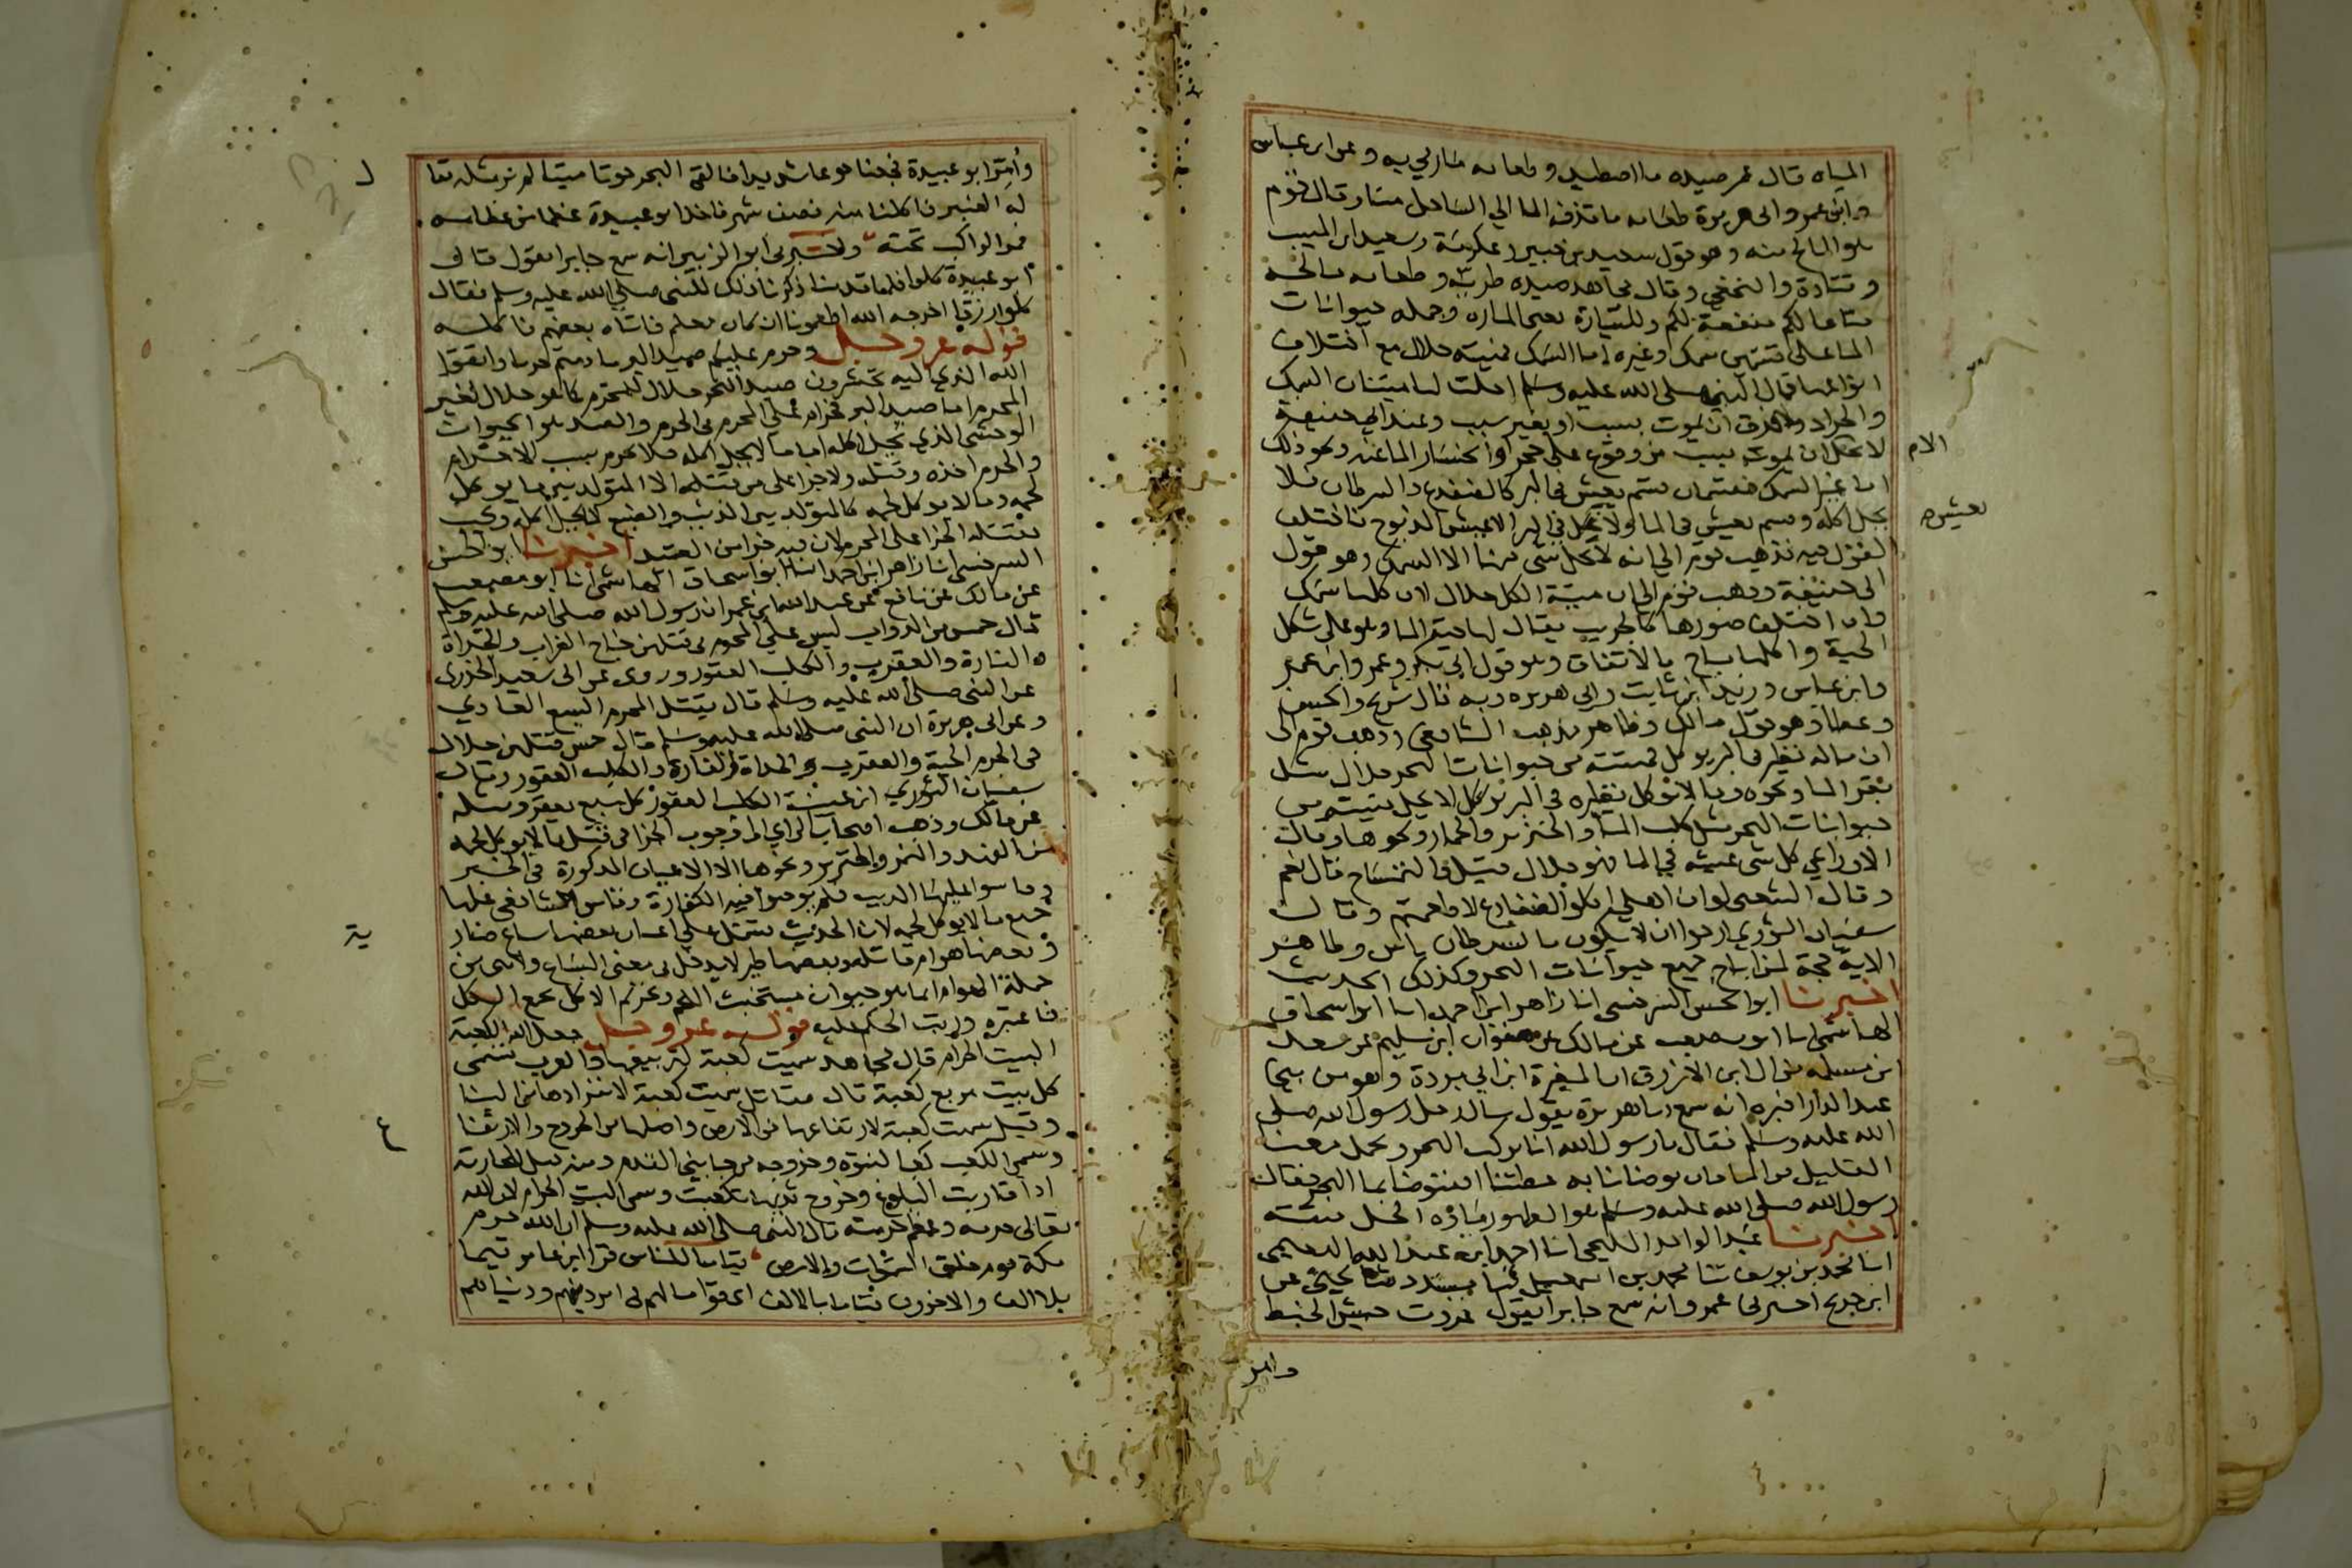 المياه قال عمر صيده ما اصطيد وطعامه ما رمي به وعن ابن عباس
وابن عمر وابي هريرة طعامه ما قذفه الما الي الساحل ميتا وقال قوم
هو المالح منه وهو قول سعيد بن جبير وعكرمة وسعيد ابن المسيب
وقتادة والنخعي وقال مجاهد صيده طريه وطعامه مالحه
متاعا لكم منفعة لكم وللسيارة يعني المارة وجملة حيوانات
الما على قسمين سمك وغيره اما السمك فميتته حلال مع اختلاف
انواعها قال النبي صلى الله عليه وسلم احلت لنا ميتتان السمك
والجراد ولا فرق ان يموت بسبب او بغير سبب وعند ابي حنيفة
لا يحل ان يموت بسبب من وقوع على حجر او انحسار الما عنه ونحو ذلك
الا م
اما غير السمك فقسمان قسم يعيش في البر كالضفدع والسرطان فلا
يحل اكله وقسم يعيش في الما ولا يعيش في البر الا عيش المذبوح فاختلف
يعيش م
القول فيه فذهب قوم الي انه لا يحل شي منها الا السمك وهو قول
ابي حنيفة وذهب قوم الي ان ميتة الكل حلال لان كلها سمك
وان اختلف صورها كالجريث يقال لها حية الما وهو على شكل
الحية واكلها مباح بالاتفاق وهو قول ابي بكر وعمر وابن عمر
وابن عباس وزيد ابن ثابت وابي هريرة وبه قال شريح والحسن
وعطا وهو قول مالك وظاهر مذهب الشافعي وذهب قوم الى
ان ماله نظير في البر يوكل فميتته من حيوانات البحر حلال مثل
بقر الما ونحوه وما لا يوكل نظيره في البر لا يحل ميتته من
حيوانات البحر مثل كلب الما والخنزير والحمار ونحوها وقال
الاوزاعي كل شي عيشه في الما فهو حلال قيل فالتمساح قال نعم
وقال الشعبي لو ان اهلي اكلوا الضفادع لاطعمتهم وقال
سفيان الثوري ارجوا ان لا يكون بالسرطان باس وظاهر
الاية حجة لمن اباح جميع حيوانات البحر وكذلك الحديث
اخبرنا ابو الحسن السرخسي انا زاهر ابن احمد انا ابو اسحاق
الهاشمي انا ابو مصعب عن مالك عن صفوان ابن سليم عن سعيد
ابن مسلمة من ال ابن الازرق ان المغيرة ابن ابي بردة وهو من بني
عبد الدار اخبره انه سمع ابا هريرة يقول سال رجل رسول الله صلى
الله عليه وسلم فقال يا رسول الله انا نركب البحر ونحمل معنا
القليل من الما فان توضانا به عطشنا افنتوضا بما البحر فقال
رسول الله صلى الله عليه وسلم هو الطهور ماؤه الحل ميتته
اخبرنا عبد الواحد المليحي انا احمد ابن عبد الله النعيمي
انا محمد بن يوسف ثنا محمد بن اسمعيل ثنا مسدد ثنا يحيى عن
ابن جريج اخبرني عمرو انه سمع جابرا يقول غزوت جيش الخبط
وامر
وأمر ابو عبيدة فجعنا جوعا شديدا فالقى البحر حوتا ميتا لم نر مثله يقا
ل
له العنبر فاكلنا منه نصف شهر فاخذ ابو عبيدة عظما من عظامه
فمر الراكب تحته واخبرني ابو الزبير انه سمع جابرا يقول قال
ابو عبيدة كلوا فلما قدمنا ذكرنا ذلك للنبي صلى الله عليه وسلم فقال
كلوا رزقا اخرجه الله اطعمونا ان كان معكم فاتاه بعضهم فاكله
قوله عز وجل وحرم عليكم صيد البر ما دمتم حرما واتقوا
الله الذي اليه تحشرون صيد البحر حلال للمحرم كما هو حلال لغير
المحرم اما صيد البر فحرام على المحرم في الحرم والصيد هو الحيوان
الوحشي الذي يحل اكله اما ما لا يحل اكله فلا يحرم بسبب الاحرام
والحرم اخذه وقتله ولا جزا على من قتله الا المتولد بين ما يوكل
لحمه وما لا يوكل لحمه كالمتولد بين الذيب والضبع لا يحل اكله ويجب
بقتله الجزا على المحرم لان فيه جزا من الصيد اخبرنا ابو الحسن
السرخسي انا زاهر ابن احمد انا ابو اسحاق الهاشمي انا ابو مصعب
عن مالك عن نافع عن عبد الله ابن عمر ان رسول الله صلى الله عليه وسلم
قال خمس من الدواب ليس على المحرم في قتلهن جناح الغراب والحداة
والفارة والعقرب والكلب العقور وروي عن ابي سعيد الخدري
عن النبي صلى الله عليه وسلم قال يقتل المحرم السبع العادي
وعن ابي هريرة ان النبي صلى الله عليه وسلم قال خمس قتلهن حلال
في الحرم الحية والعقرب والحداة والفارة والكلب العقور وقال
سفيان الثوري ابن عيينة الكلب العقور كل سبع يعقر ومثله
عن مالك وذهب اصحاب الراي الى وجوب الجزا في قتل ما لا يوكل لحمه
من الفهد والنمر والخنزير ونحوها الا الاعيان المذكورة في الخبر
وقاسوا عليها الذيب فلم يوجبوا فيه الكفارة وقاس الشافعي عليها
جميع ما لا يوكل لحمه لان الحديث يشتمل على اعيان بعضها سباع ضار
ية
وبعضها هوام قاتلة وبعضها طير لا يدخل في معنى السباع ولا هي من
جملة الهوام انما هو حيوان مستخبث اللحم وتحريم الاكل يجمع الكل
فاعتبره ورتب الحكم عليه قوله عز وجل جعل الله الكعبة
البيت الحرام قال مجاهد سميت كعبة لتربيعها والعرب تسمى
كل بيت مربع كعبة قال مقاتل سميت كعبة لانفرادها من البنا
وقيل سميت كعبة لارتفاعها من الارض واصلها من الخروج والارتفا
ع
وسمي الكعب كعبا لنتوه وخروجه من جانبي القدم ومنه قيل للجارية
اذا قاربت البلوغ وخروج ثديها تكعبت وسمي البيت الحرام لان الله
تعالى حرمه وعظم حرمته قال النبي صلى الله عليه وسلم ان الله حرم
مكة يوم خلق السموات والارض قياما للناس قرا ابن عامر قيما
بلا الف والاخرون قياما بالالف اي قواما لهم في امر دينهم ودنياهم